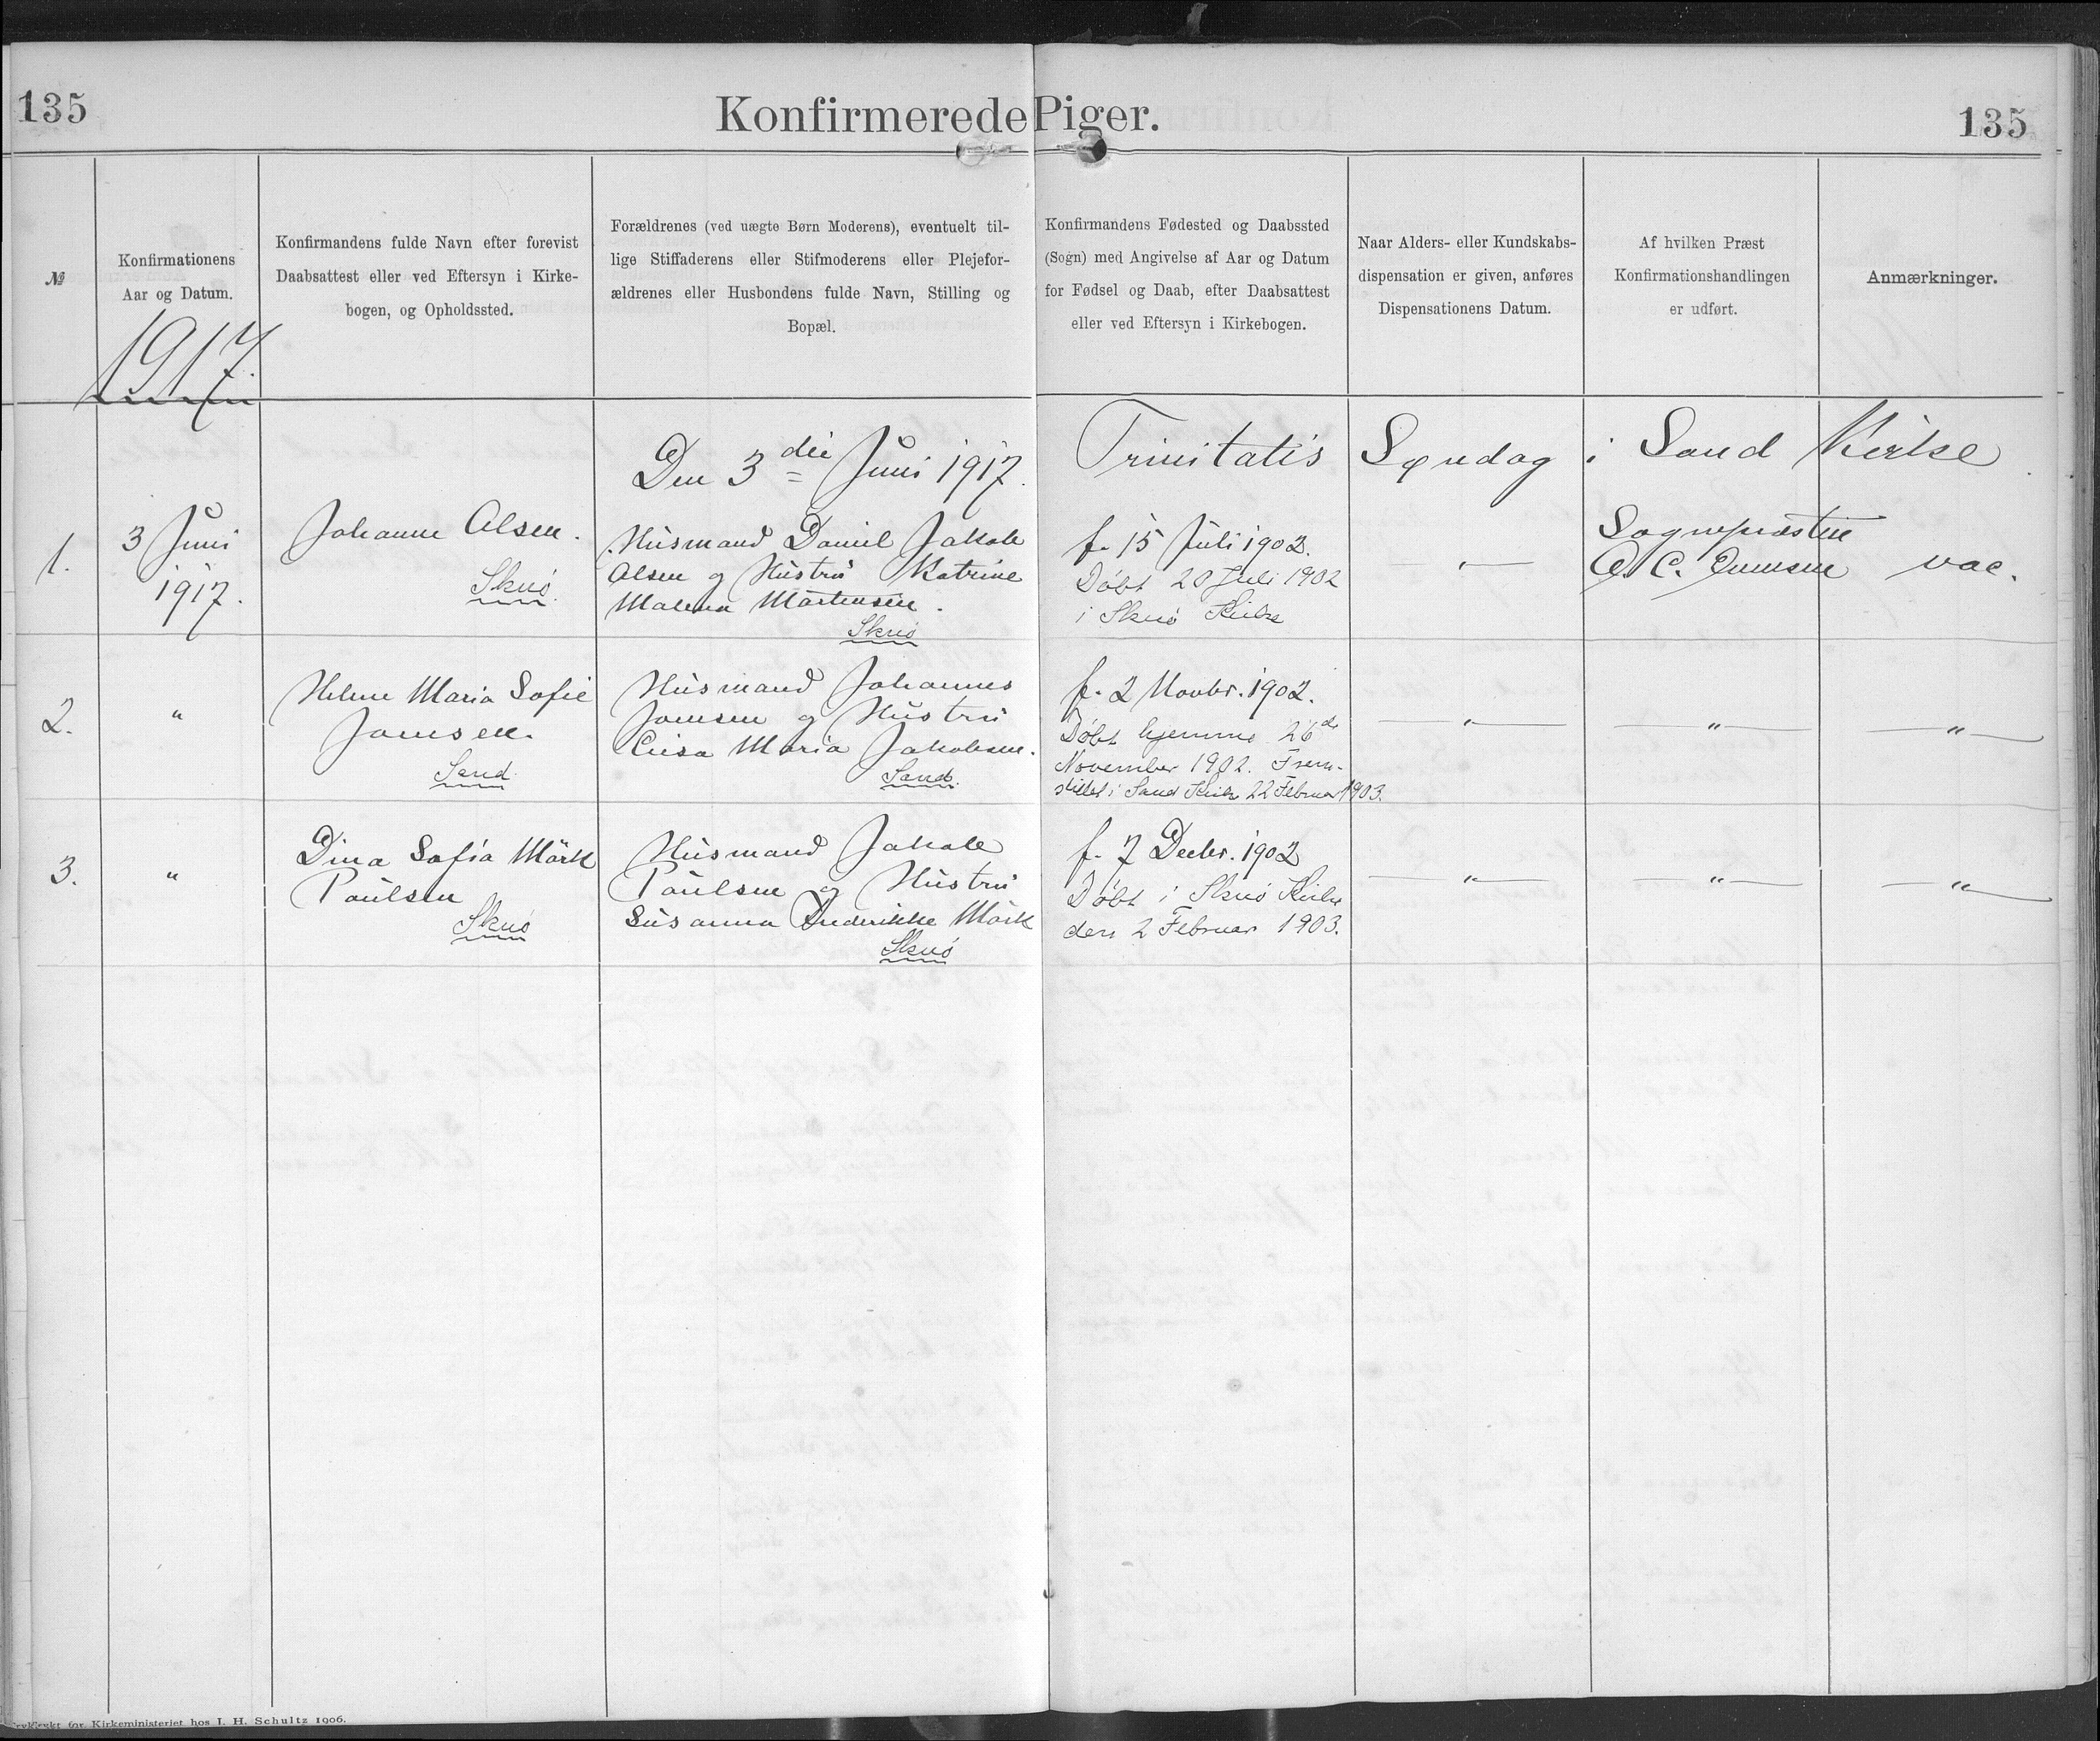 135
Konfirmerede Piger.
135
№
Konfirmationens
Aar og Datum.
Konfirmandens fulde Navn efter forevist
Daabsattest eller ved Eftersyn i Kirke-
bogen, og Opholdssted.
Forældrenes (ved uægte Børn Moderens), eventuelt til-
lige Stiffaderens eller Stifmoderens eller Plejefor-
ældrenes eller Husbondens fulde Navn, Stilling og
Bopæl.
Konfirmandens Fødested og Daabssted
(Sogn) med Angivelse af Aar og Datum
for Fødsel og Daab, efter Daabsattest
eller ved Eftersyn i Kirkebogen.
Naar Alders- eller Kundskabs-
dispensation er given, anføres
Dispensationens Datum.
Af hvilken Præst
Konfirmationshandlingen
er udført.
Anmærkninger.
1917.
Den 3die Juni 1917. Trinitatis Søndag i Sand Kirke
1.
3 Juni
1917.
Johanne Olsen.
Skuø.
Husmand Daniel Jakob
Olsen og Hustru Katrine
Malena Mortensen.
Skuø
f. 15 Juli 1902.
Døbt 20 Juli 1902
i Skuø Kirke
"
Sognepræsten
vac.
2.
"
Helene Maria Sofie
Joensen.
Sand
Husmand Johannes
Joensen og Hustru
Maria Jakobsen.
Sand.
f. 2 Novbr. 1902.
Døbt hjemme 26de
November 1902. Frem-
stillet i Sand Kirke 22 Februar 1903.
"
"
"
3.
"
Dina Sofia Mörk
Poulsen
Skuø
Husmand Jakob
Poulsen og Hustru
Susanna Frederikke Mörk
Skuø
f. 7 Decbr. 1902
Døbt i Skuø Kirke
den 2 Februar 1903.
"
"
"
for Kirkeministeriet hos J. H. Schultz 1906.